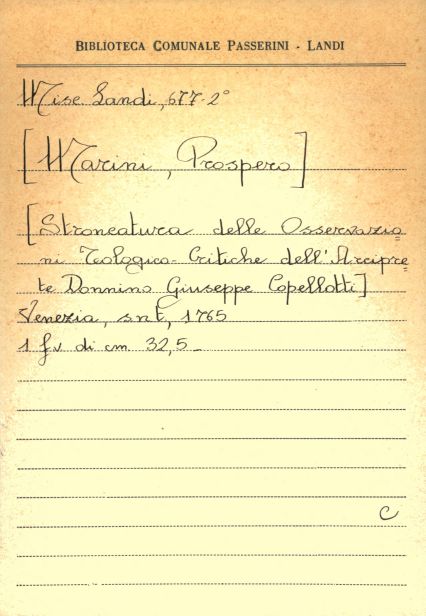 BIBLIOTECA COMUNALE PASSERINI - LANDI
Misc Landi, 677-2°
[Marini, Prospero]
[Stroncatura delle Osservazio=
ni Teologico-Critiche dell'Arcipre=
te Donnino Giuseppe Copellotti]
Venezia, snt, 1765
1 fv di cm. 32,5_
C